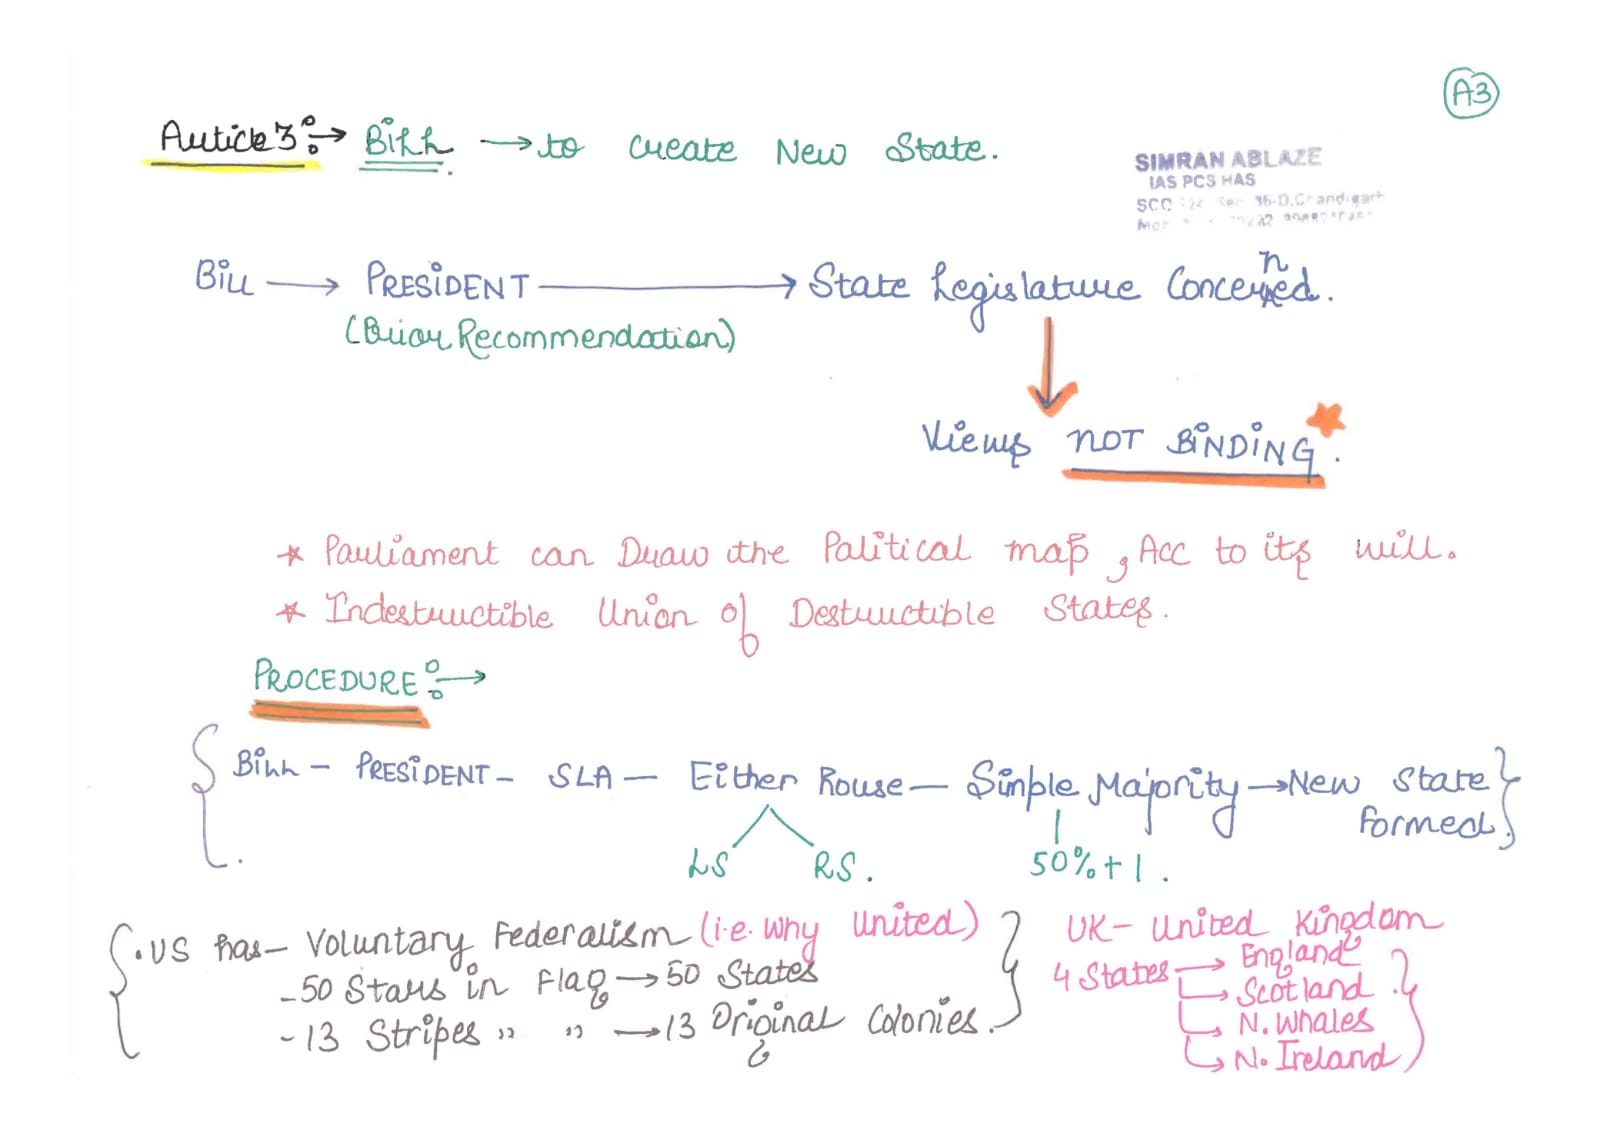 A3
Article 3 :→ Bill → to create New State.
SIMRAN ABLAZE
IAS PCS HAS
SCO Sec 35-D, Chandigarh
Bill → PRESiDENT → State Legislature Concerned.
(Prior Recommendation)
Views NOT BiNDiNG.
* Parliament can Draw the Political map, Acc to its will.
* Indestructible Union of Destructible States.
PROCEDURE :→
Bill - PRESiDENT - SLA - Either House - Simple Majority → New State
formed.
LS RS. 50% + 1.
. US has - Voluntary Federalism (i.e. why United)
- 50 Stars in Flag → 50 States
- 13 Stripes " " → 13 Original Colonies.
UK - United Kingdom
4 States → England
→ Scotland.
→ N. Whales
→ N. Ireland